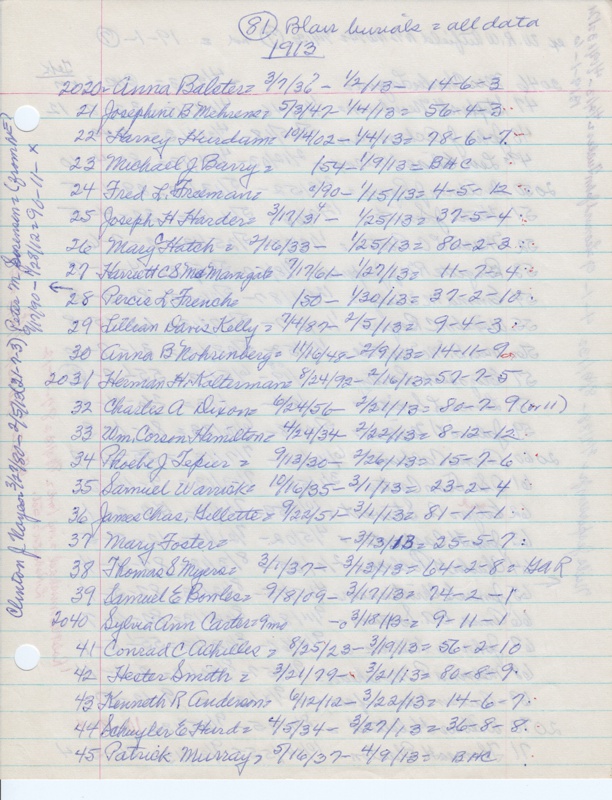 (81) Blair burials = all data
1913
2020- Anna Balster= 3/7/36? - 1/2/13- 14-6-3
21 Josephine B Mehrens= 5/3/47- 1/4/13= 56-4-3
22 Harvey Heirdam= 10/4/02- 1/4/13= 78-6-7
23 Michael J. Barry= 154- 1/9/13= BHC
24 Fred L. Freeman= 2/90- 1/15/13= 4-5-12
25 Joseph H Harder= 3/17/31 4 - 1/25/13= 37-5-4
26 Mary C Hatch= 2/16/33- 1/25/13= 80-2-3
27 Harriett C S Mc Manigal= 7/17/61- 1/27/13= 11-7-4
28 Percie L Frenche 150- 1/30/13= 37-2-10
29 Lillian Davis Kelly= 7/4/87- 2/5/13= 9-4-3
30 Anna B Nohrenberg= 11/16/48- 2/9/13= 14-11-9
2031 Herman H. Kolterman= 8/24/92- 2/16/13=57-7-5
32 Charles A Dixon= 6/24/56- 2/21/13= 80-7-9 (or 11)
33 Wm. Corson Hamilton= 4/24/34- 2/22/13= 8-12-12
34 Phoebe J Tepier= 9/13/30- 2/26/13= 15-7-6
35 Samuel Warrick= 10/16/35- 3/1/13= 23-2-4
36 James Chas. Gillette= 9/22/51- 3/1/13= 81-1-1
37 Mary Foster= - 3/13/13= 25-5-7
38 Thomas S Myers= 3/1/37- 3/13/13= 64-2-8= GAR
39 Samuel E Bombs= 9/8/09- 3/17/13= 74-2-1
2040 Sylvia Ann Carter=9mo -0 3/18/13= 9-11-1
41 Conrad C Achilles= 8/25/23- 3/19/13= 56-2-10
42 Hester Smith= 3/21/79- 3/21/13= 80-8-9
43 Kenneth R Anderson= 6/12/12- 3/22/13= 14-6-7
44 Schuyler E Hurd= 4/5/34- 3/27/13= 36-8-8
45 Patrick Murray, 5/16/37- 4/9/13= BHC
Clinton J. 2/5/13(21-7-3) Peter M.
1/28/12=90-11-x